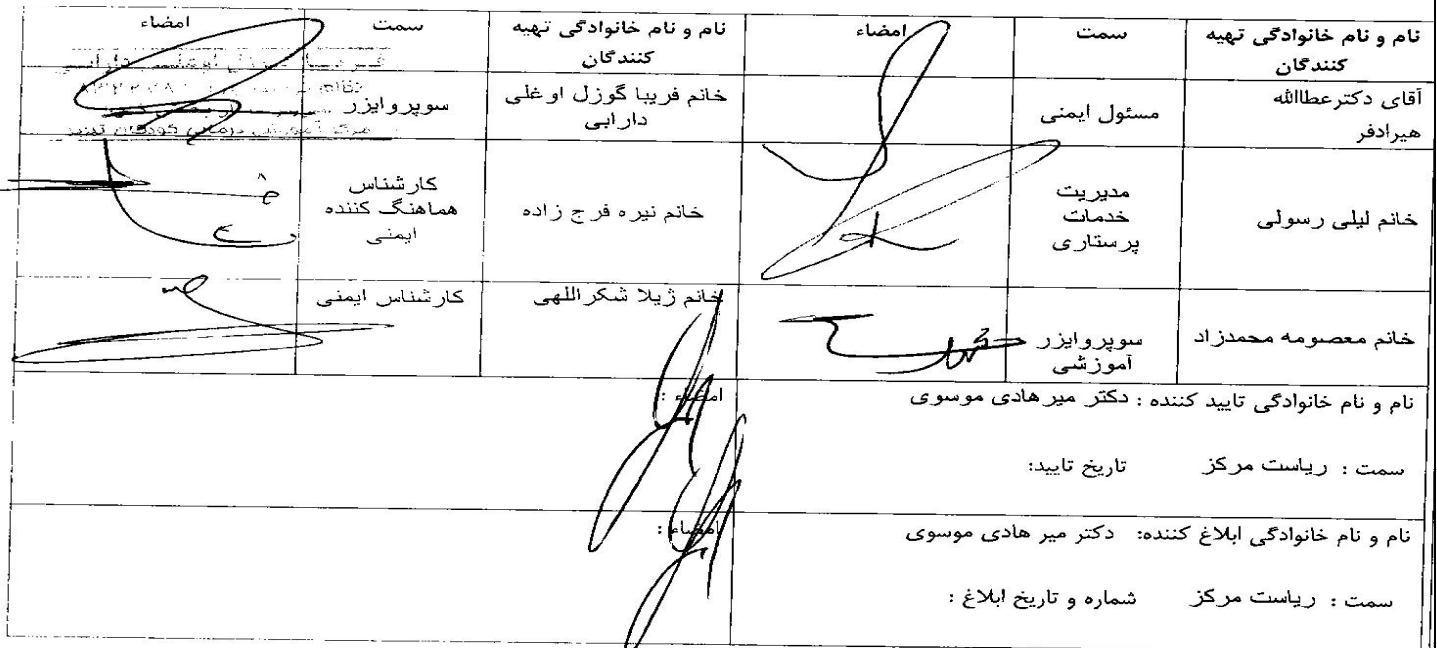 نام و نام خانوادگی تهیه کنندگان
سمت
امضاء
نام و نام خانوادگی تهیه کنندگان
سمت
امضاء
آقای دکترعطاالله
هیرادفر
مسئول ایمنی
خانم فریبا گوزل اوغلی
دارابی
سوپروایزر
مرکز آموزشی درمانی کودکان تبریز
خانم لیلی رسولی
مدیریت
خدمات
پرستاری
خانم نیره فرج زاده
کارشناس
هماهنگ کننده
ایمنی
خانم معصومه محمدزاد
سوپروایزر
آموزشی
خانم ژیلا شکراللهی
کارشناس ایمنی
نام و نام خانوادگی تایید کننده : دکتر میرهادی موسوی
امضاء :
سمت : ریاست مرکز تاریخ تایید:
نام و نام خانوادگی ابلاغ کننده: دکتر میر هادی موسوی
امضاء :
سمت : ریاست مرکز شماره و تاریخ ابلاغ :